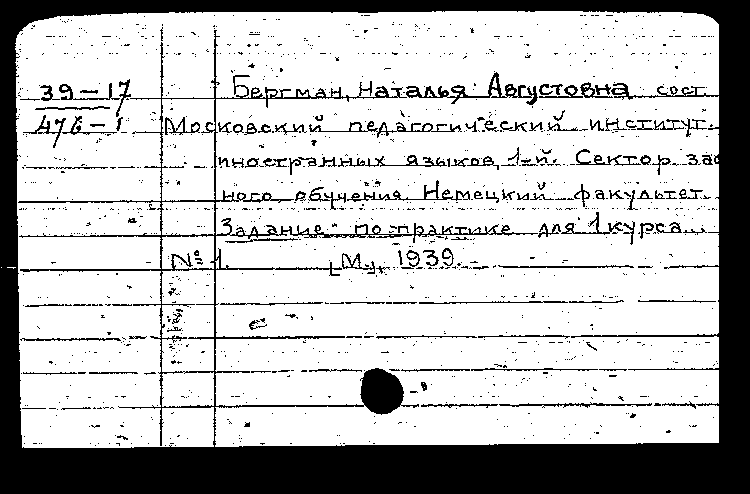 39-17
476-1
Бергман, Наталья Августовна сост.
Московский педагогический институт
иностранных языков, 1-й. Сектор заоч
ного обучения Немецкий факультет.
Задание по практике для 1 курса...
№ 1. [М.], 1939.